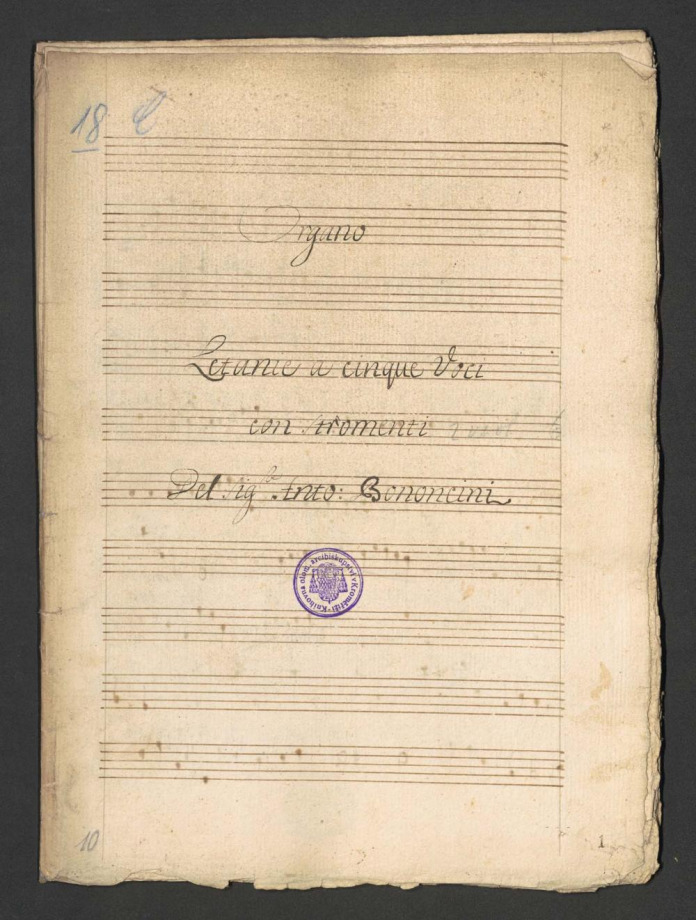 18 C
Organo
Letanie a cinque Voci
con stromenti
Del Sig.r Anto: Bononcini
Knihovna olom. arcibiskupství v Kroměříži
10
1